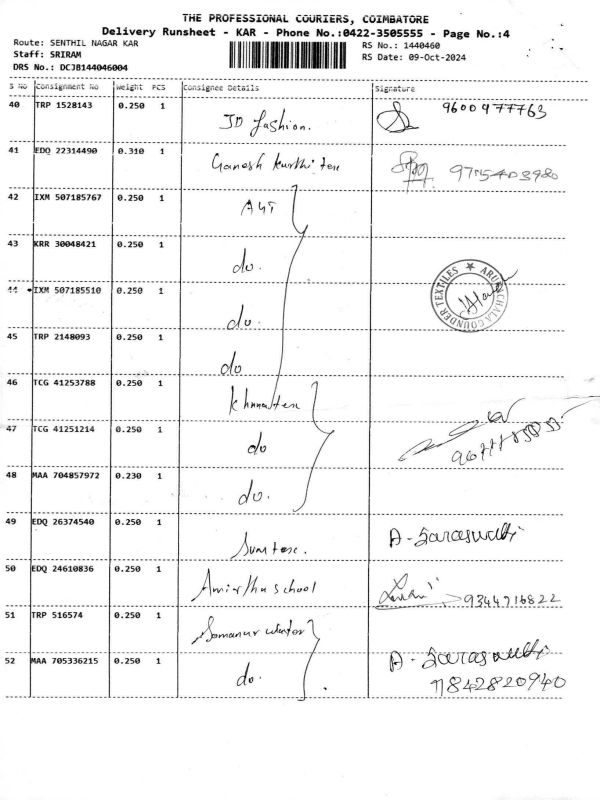 THE PROFESSIONAL COURIERS, COIMBATORE
Delivery Runsheet - KAR - Phone No.:0422-3505555 - Page No.:4
Route: SENTHIL NAGAR KAR RS No.: 1440460
Staff: SRIRAM RS Date: 09-Oct-2024
DRS No.: DCJB144046004
S No Consignment No Weight PCS Consignee Details Signature
40 TRP 1528143 0.250 1 JD fashion. 9600477763
41 EDQ 22314490 0.310 1 Ganesh 9715403980
42 IXM 507185767 0.250 1
43 KRR 30048421 0.250 1 do.
ARUNACHALA COUNDER TEXTILES
44 IXM 507185510 0.250 1 do.
45 TRP 2148093 0.250 1 do
46 TCG 41253788 0.250 1
47 TCG 41251214 0.250 1 do
48 MAA 704857972 0.230 1 do.
49 EDQ 26374540 0.250 1 A. Saraswathi
50 EDQ 24610836 0.250 1 Amirtha school 9344716822
51 TRP 516574 0.250 1 Somanur
52 MAA 705336215 0.250 1 do. A. Saraswathi
9842820940